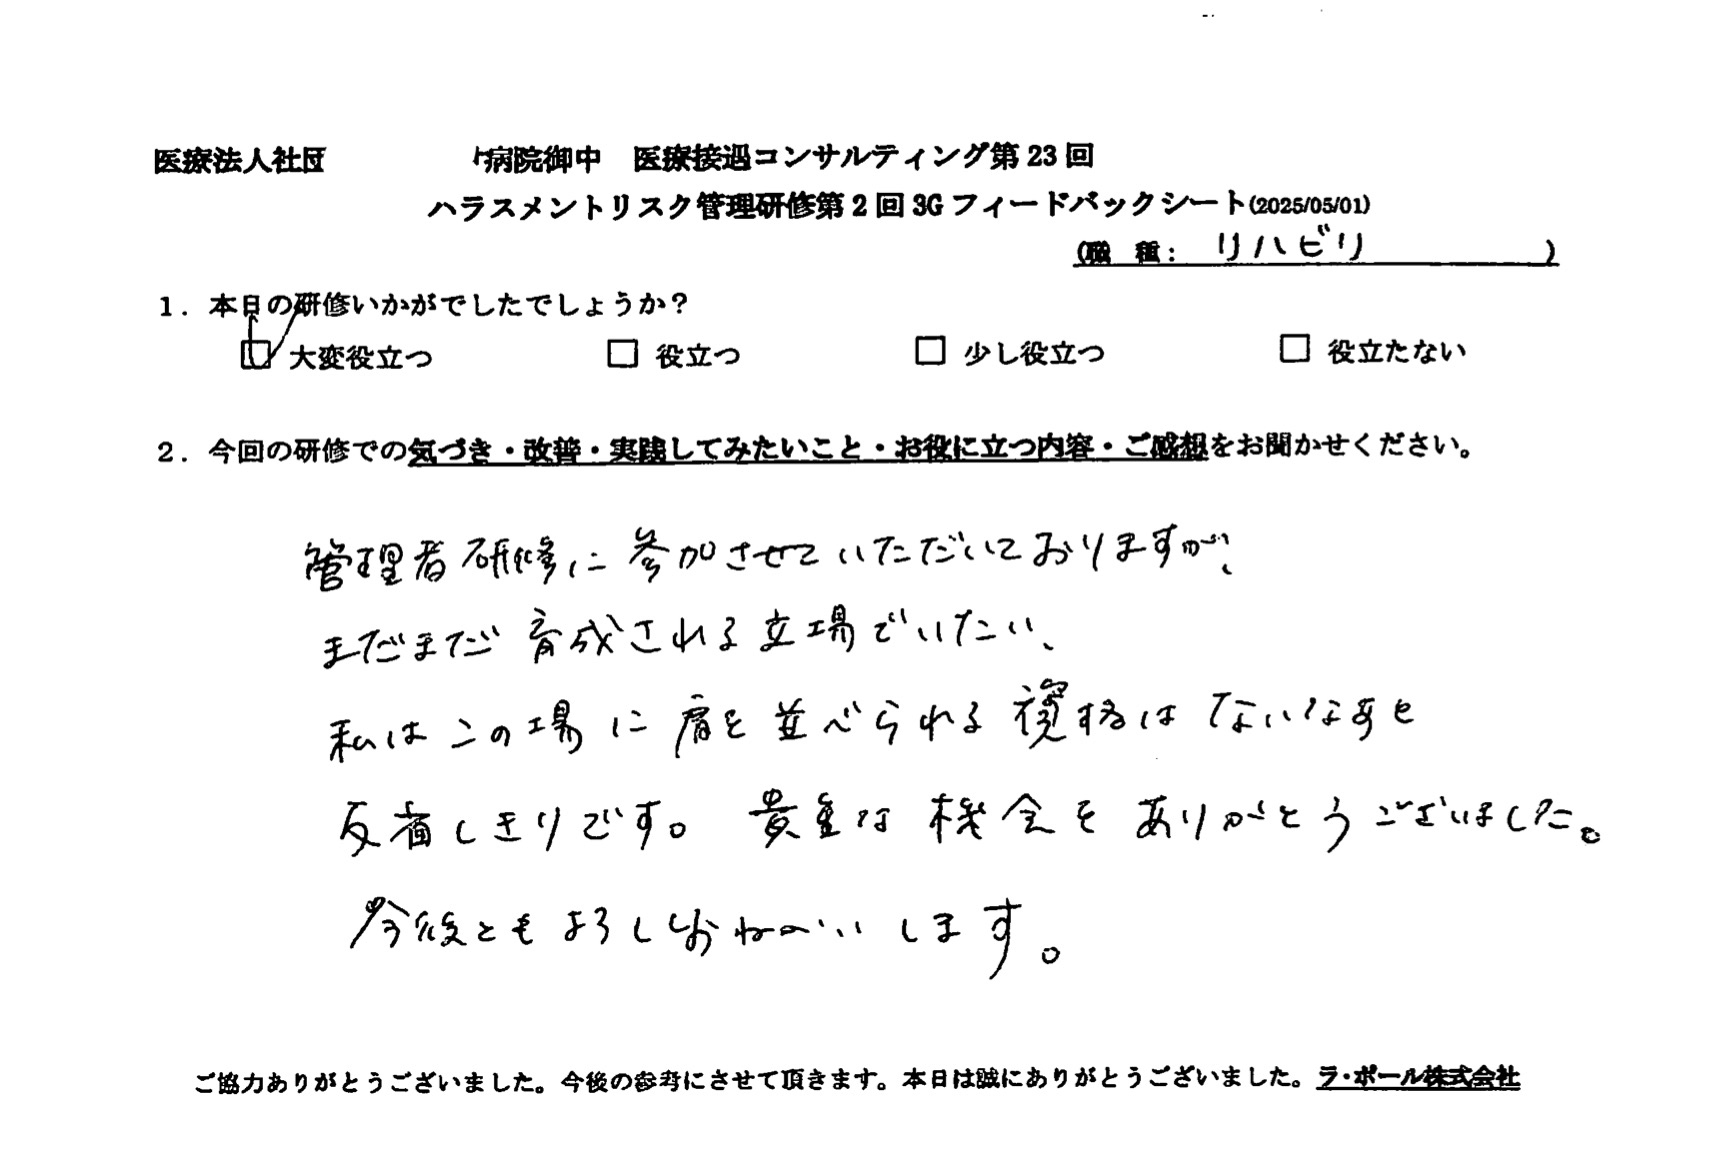 医療法人社団 病院御中 医療接遇コンサルティング第23回
ハラスメントリスク管理研修第2回3Gフィードバックシート(2025/05/01)
(職 種: リハビリ )
1. 本日の研修いかがでしたでしょうか?
☑ 大変役立つ □ 役立つ □ 少し役立つ □ 役立たない
2. 今回の研修での気づき・改善・実践してみたいこと・お役に立つ内容・ご感想をお聞かせください。
管理者研修に参加させていただいておりますが、
まだまだ育成される立場でいたい、
私はこの場に肩を並べられる資格はないなあと
反省しきりです。貴重な機会をありがとうございました。
今後ともよろしくおねがいします。
ご協力ありがとうございました。今後の参考にさせて頂きます。本日は誠にありがとうございました。ラ・ポール株式会社